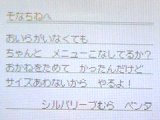 そなちねへ
おいらがいなくても
ちゃんと メニューこなしてるか？
おかねをためて かったんだけど
サイズあわないから やるよ！
シルバリーブむら ペンタ